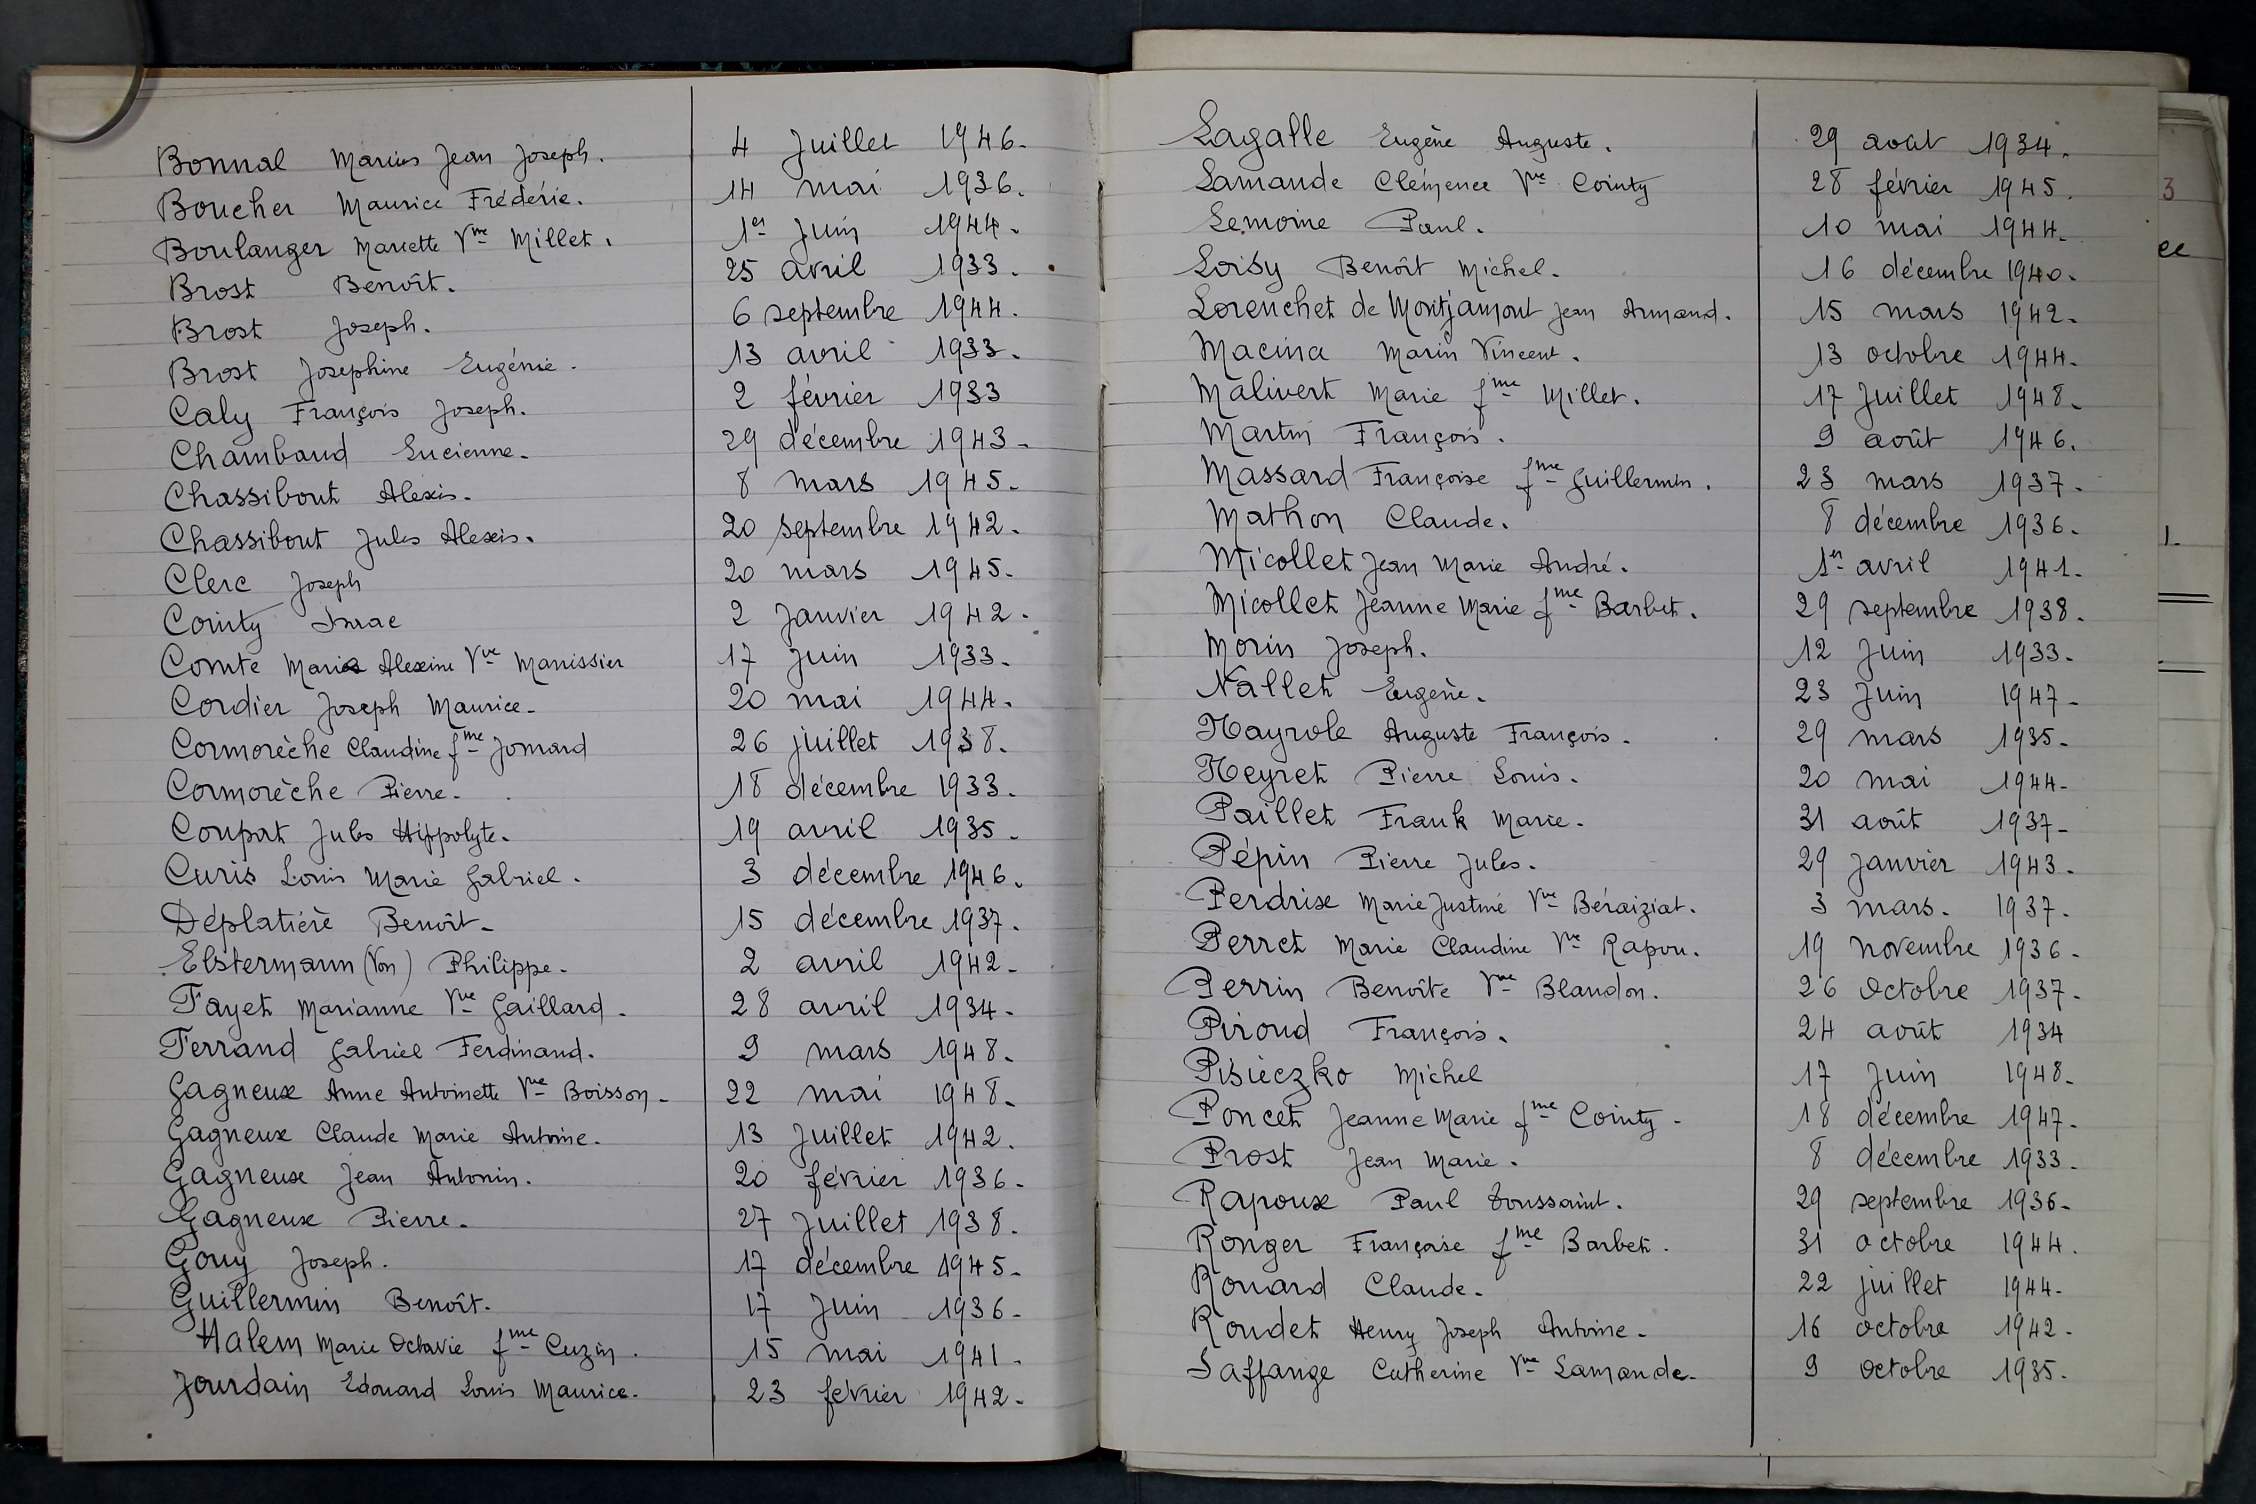 Bonnal Marius Jean Joseph. 4 Juillet 1946.
Boucher Maurice Frédéric. 14 mai 1936.
Boulanger Mariette Vve Millet. 1er Juin 1944.
Brost Benoît. 25 avril 1933.
Brost Joseph. 6 septembre 1944.
Brost Joséphine Eugénie. 13 avril 1933.
Caly François Joseph. 2 février 1933
Chambaud Lucienne. 29 décembre 1943.
Chassibout Alexis. 8 mars 1945.
Chassibout Jules Alexis. 20 septembre 1942.
Clerc Joseph 20 mars 1945.
Cointy Isaac 2 Janvier 1942.
Comte Marie Alexine Vve Manissier 17 Juin 1933.
Cordier Joseph Maurice. 20 mai 1944.
Cormorèche Claudine fme Jomard 26 juillet 1938.
Cormorèche Pierre. 18 décembre 1933.
Coupat Jules Hippolyte. 19 avril 1935.
Curis Louis Marie Gabriel. 3 décembre 1946.
Déplatière Benoît. 15 décembre 1937.
Elstermann (Von) Philippe. 2 avril 1942.
Fayet Marianne Vve Gaillard. 28 avril 1934.
Ferrand Gabriel Ferdinand. 9 mars 1948.
Gagneux Anne Antoinette Vve Boisson. 22 mai 1948.
Gagneux Claude Marie Antoine. 13 Juillet 1942.
Gagneux Jean Antonin. 20 février 1936.
Gagneux Pierre. 27 Juillet 1938.
Gouy Joseph. 17 décembre 1945.
Guillermin Benoît. 17 Juin 1936.
Halem Marie Octavie fme Cuzin. 15 mai 1941.
Jourdain Edouard Louis Maurice. 23 février 1942.
Lagalle Eugène Auguste. 29 août 1934.
Lamande Clémence Vve Cointy 28 février 1945.
Lemoine Paul. 10 mai 1944.
Loisy Benoît Michel. 16 décembre 1940.
Lorenchet de Montjamont Jean Armand. 15 mars 1942.
Macina Marin Vincent. 13 octobre 1944.
Malivert Marie fme Millet. 17 Juillet 1948.
Martin François. 9 août 1946.
Massard Françoise fme Guillermin. 23 mars 1937.
Mathon Claude. 8 décembre 1936.
Micollet Jean Marie André. 1er avril 1941.
Micollet Jeanne Marie fme Barbet. 29 septembre 1938.
Morin Joseph. 12 Juin 1933.
Nallet Eugène. 23 Juin 1947.
Nayrole Auguste François. 29 mars 1935.
Neyret Pierre Louis. 20 mai 1944.
Paillet Frank Marie. 31 août 1937.
Pépin Pierre Jules. 29 Janvier 1943.
Perdrix Marie Justine Vve Béraiziat. 3 mars. 1937.
Perret Marie Claudine Vve Rapou. 19 novembre 1936.
Perrin Benoîte Vve Blandon. 26 octobre 1937.
Piroud François. 24 août 1934
Pisieczko Michel 17 Juin 1948.
Poncet Jeanne Marie fme Cointy. 18 décembre 1947.
Prost Jean Marie. 8 décembre 1933.
Rapoux Paul Toussaint. 29 septembre 1936.
Ronger Françoise fme Barbet. 31 octobre 1944.
Rouard Claude. 22 juillet 1944.
Roudet Henry Joseph Antoine. 16 octobre 1942.
Saffange Catherine Vve Lamande. 9 octobre 1935.